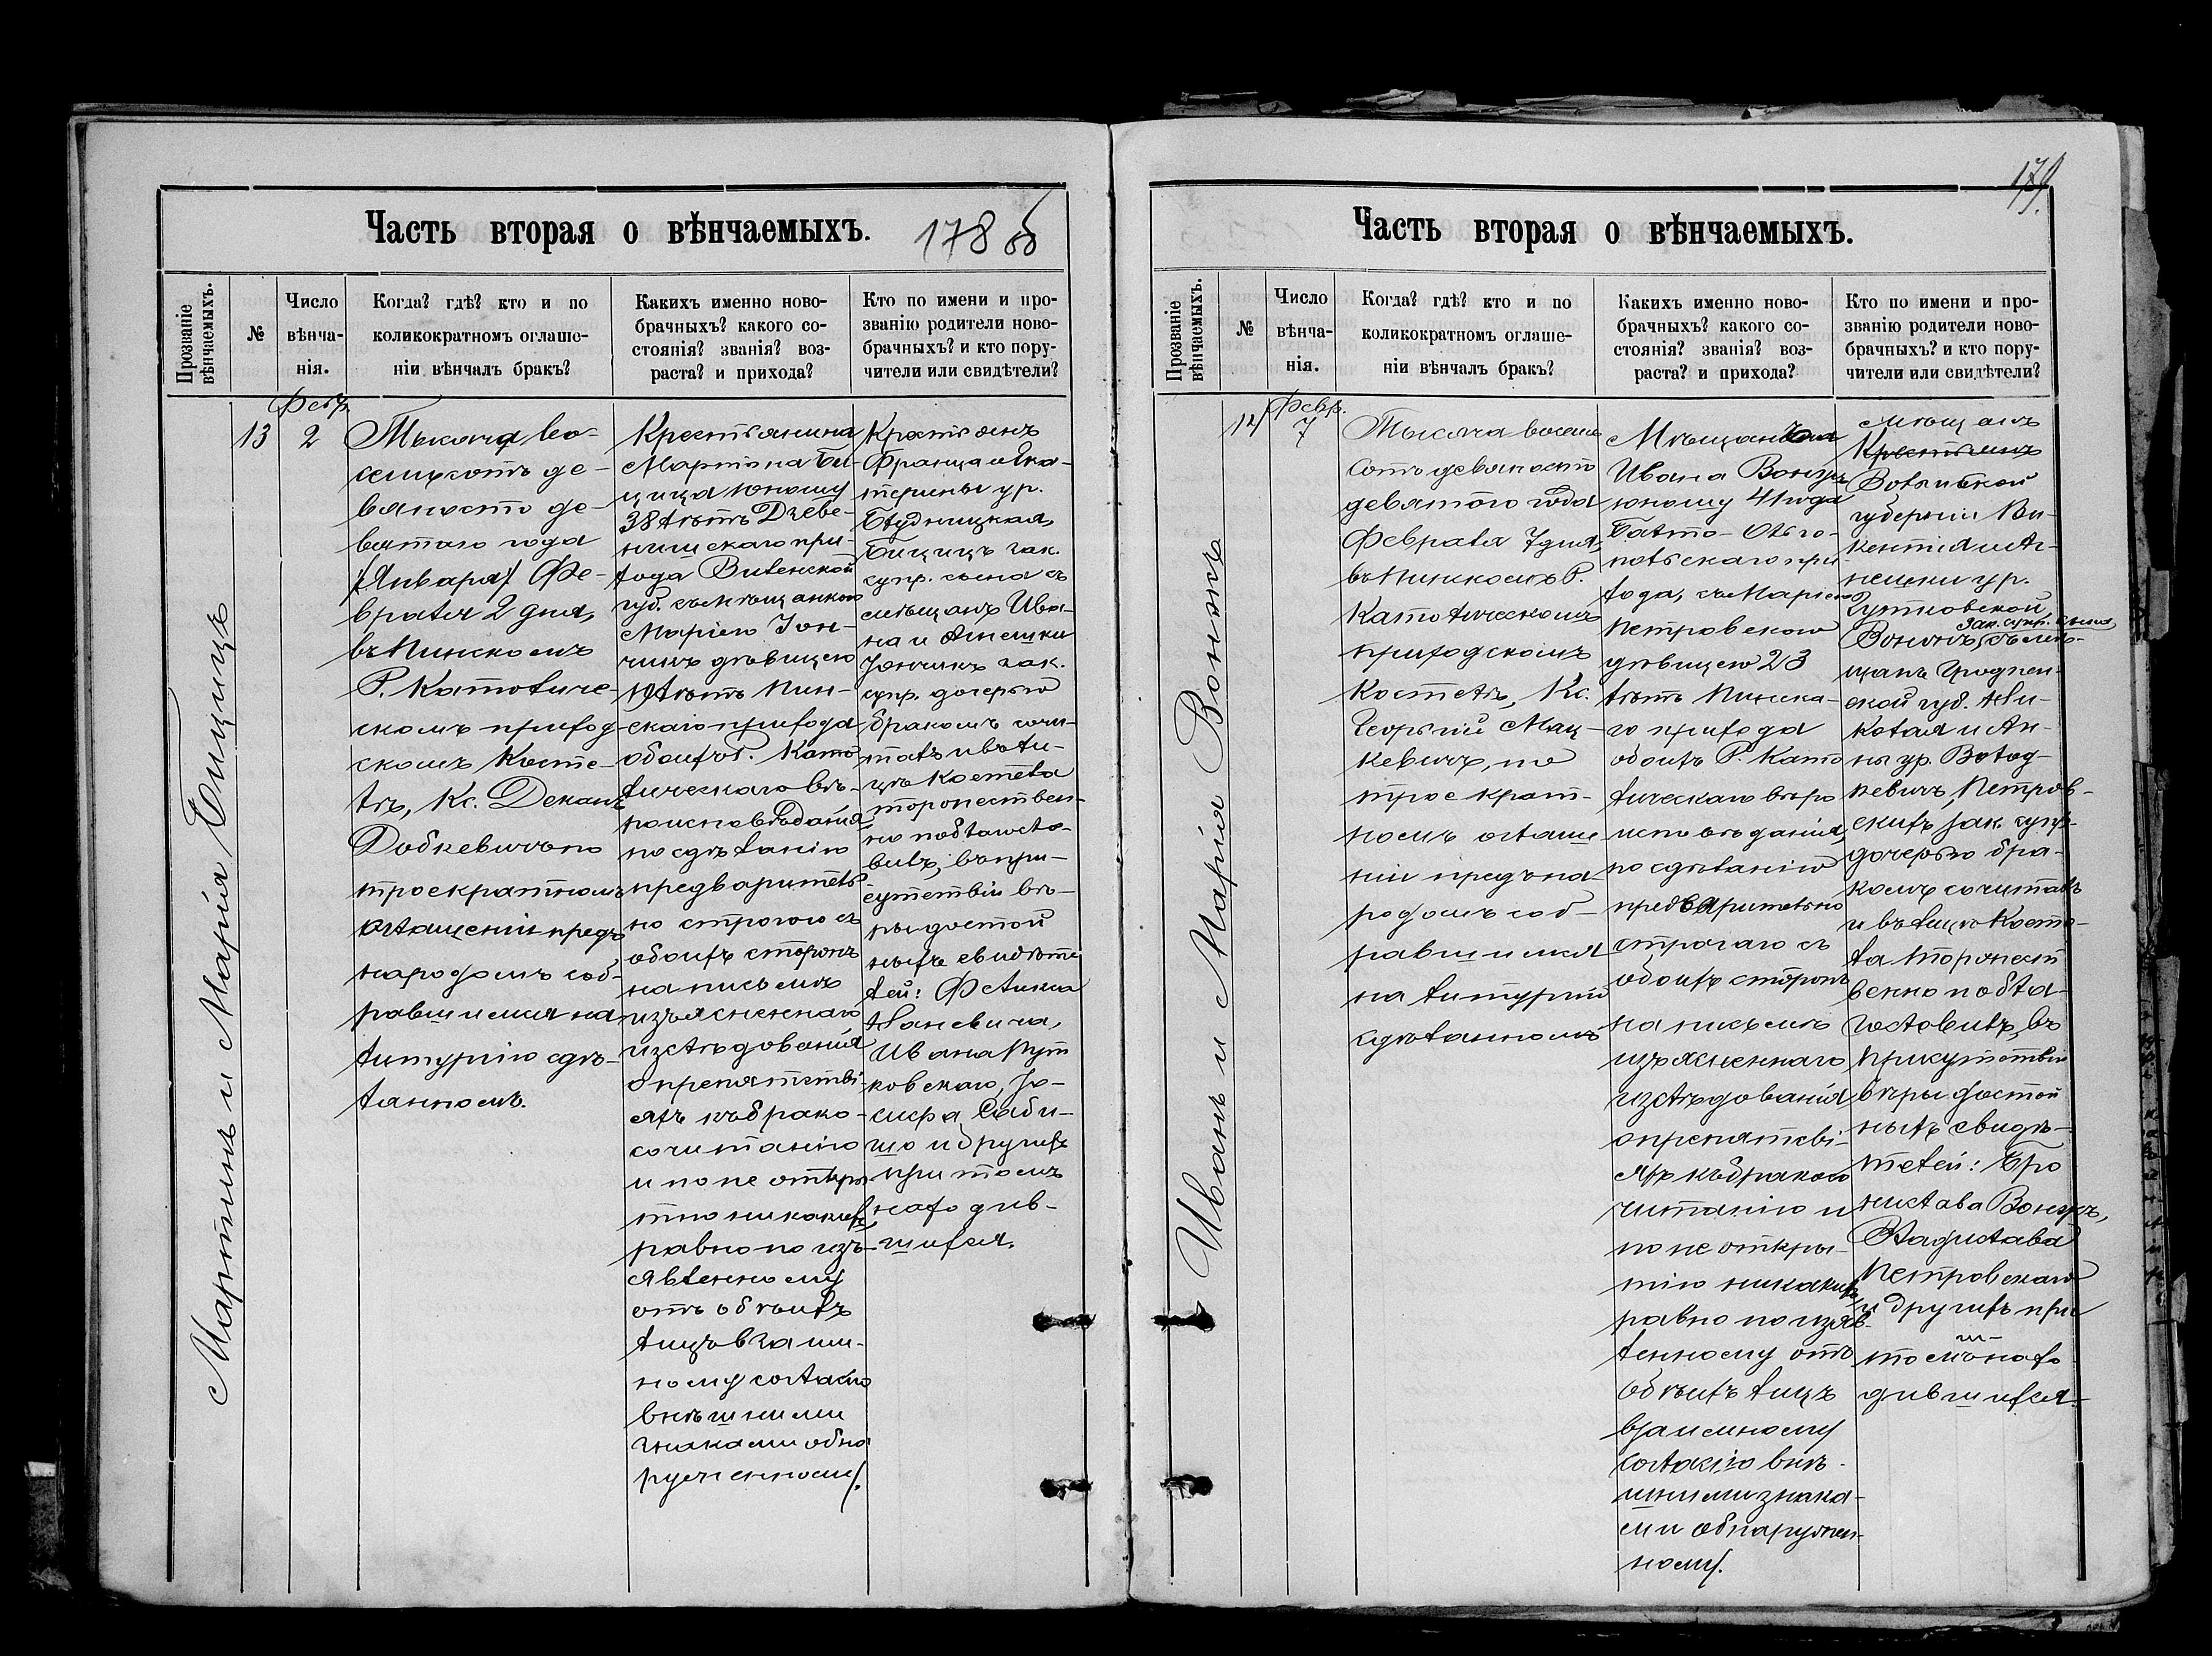 Часть вторая о вѣнчаемыхъ.
178 об
Прозваніе вѣнчаемыхъ.
№
Число вѣнча-
нія.
Когда? гдѣ? кто и по
коликократномъ оглаше-
ніи вѣнчалъ бракъ?
Какихъ именно ново-
брачныхъ? какого со-
стоянія? званія? воз-
раста? и прихода?
Кто по имени и про-
званію родители ново-
брачныхъ? и кто пору-
чители или свидѣтели?
Мартинъ и Марія Бицицъ
13
Февр.
2
Тысяча во-
семьсотъ де-
вяносто де-
вятаго года
/Января/ Фе-
враля 2 дня,
въ Пинскомъ
Р. Католиче-
скомъ приход-
скомъ Косте-
лѣ, Кс. Деканъ
Добкевичъ по
троекратномъ
оглашеніи предъ
народомъ соб-
равшимся на
литургію сдѣ-
ланномъ.
Крестьянина
Мартина Би-
цица юношу
38 лѣтъ Дзеве-
нишскаго при-
хода Виленской
губ. съ мѣщанкою
Маріею Іон-
чикъ дѣвицею
19 лѣтъ Пин-
скаго прихода
обоихъ Р. Като
лическаго вѣ-
роисповѣданія,
по сдѣланію
предваритель
но строгого съ
обоихъ сторонъ
на письмѣ
изъясненнаго
изслѣдованія
о препятстві-
яхъ къ брако-
сочитанію
и по не откры
тію никакихъ
равно по изъ-
явленному
отъ обѣихъ
лицъ взаим-
ному согласію
внѣшними
знаками обна
руженному.
Крестьянъ
Франца и Ека-
терины ур.
Блудницкая,
Бицицъ зак.
супр. сына съ
мѣщанъ Ива-
на и Агнешки
Іончикъ зак.
супр. дочерью
бракомъ сочи-
талъ и въ ли-
цѣ Костела
торжествен-
но поблагосло-
вилъ, въ при-
сутствіи вѣ-
ры достой
ныхъ свидѣте
лей: Феликса
Ивана Рут
ковскаго, Іо-
сифа Саби-
ло и другихъ
при томъ
находив-
шихся.
179.
Часть вторая о вѣнчаемыхъ.
Прозваніе вѣнчаемыхъ.
№
Число вѣнча-
нія.
Когда? гдѣ? кто и по
коликократномъ оглаше-
ніи вѣнчалъ бракъ?
Какихъ именно ново-
брачныхъ? какого со-
стоянія? званія? воз-
раста? и прихода?
Кто по имени и про-
званію родители ново-
брачныхъ? и кто пору-
чители или свидѣтели?
Иванъ и Марія Вонжъ
14
Февр.
7
Тысяча восемь
сотъ девяносто
девятого года
Февраля 7 дня,
въ Пинскомъ Р.
Католическомъ
приходскомъ
Костелѣ, Кс.
Георгій Мац-
кевичъ, по
троекрат-
номъ оглаше
ніи предъ на-
родомъ соб-
равшимся
на литургію
сдѣланномъ
Мѣщанина
Ивана Вонжъ
юношу 41 года
польскаго при
хода, съ Маріею
Петровскою
дѣвицею 23
лѣтъ Пинска-
го прихода
обоихъ Р. Като
лическаго вѣро
исповѣданія,
по сдѣланію
предварительно
строгаго съ
обоихъ сторонъ
на письмѣ
изъясненнаго
изслѣдованія
о препятстві-
яхъ къ бракосо
читанію и
по не откры-
тію никакихъ,
равно по изъяв-
ленному отъ
обѣихъ лицъ
взаимному
согласію внѣ-
шними знака-
ми обнаружен-
ному.
мѣщанъ
Крестьянъ
Волынской
губерніи Ви-
кентія и Аг-
нешки ур.
Гутковской,
зак. супр. сына
Вонжъ, съ мѣ-
щанъ Гроднен-
ской губ. Ни-
колая и Ан-
ны ур. Волод-
кевичъ, Петров-
скихъ зак. супр.
дочерью бра-
комъ сочиталъ
и въ лицѣ Косте-
ла торжест
венно побла-
гословилъ, въ
присутствіи
вѣры достой
ныхъ свидѣ-
телей: Бро
нислава Вонжъ,
Владислава
Петровскаго
и другихъ при
томъ нахо
дившихся.